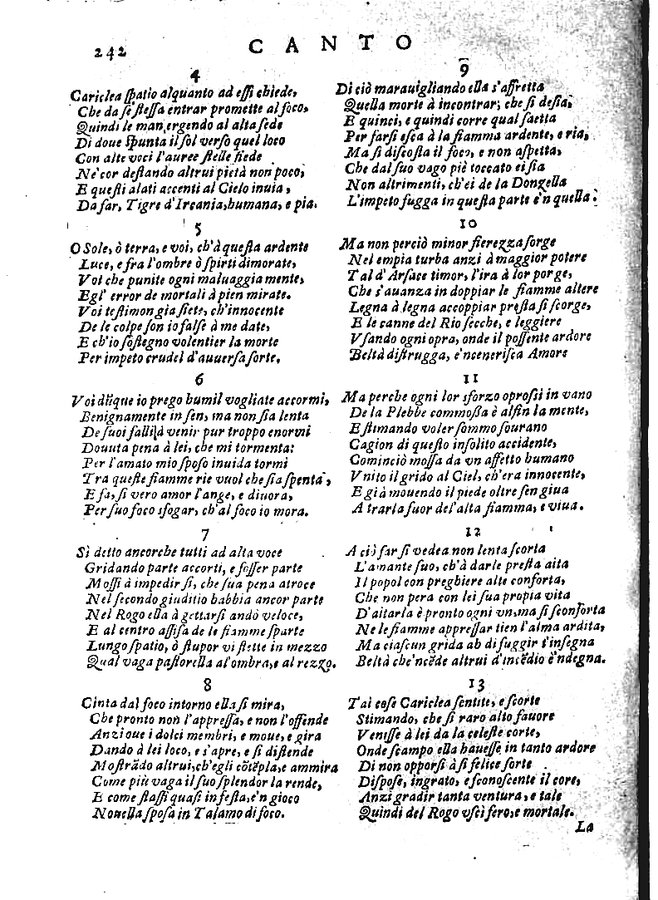 242
CANTO
4
Cariclea spatio alquanto ad essi chiede,
Che da se stessa entrar promette al foco,
Quindi le man, ergendo al alta sede
Di doue spunta il sol verso quel loco
Con alte voci l'auree stelle fiede
Ne cor destando altrui pietà non poco,
E questi alati accenti al Cielo inuia,
Da far, Tigre d'Ircania, humana, e pia.
5
O Sole, ò terra, e voi, ch'à questa ardente
Luce, e fra l'ombre ò spirti dimorate,
Voi che punite ogni maluaggia mente,
Egl' error de mortali à pien mirate.
Voi testimon gia siete, ch'innocente
De le colpe son io false à me date,
E ch'io sostegno volentier la morte
Per impeto crudel d'auuersa sorte.
6
Voi dūque io prego humil vogliate accormi,
Benignamente in sen, ma non sia lenta
De suoi falli à venir pur troppo enormi
Douuta pena à lei, che mi tormenta:
Per l'amato mio sposo inuida tormi
Tra queste fiamme rie vuol che sia spenta,
E fa, si vero amor l'ange, e diuora,
Per suo foco sfogar, ch'al foco io mora.
7
Si detto ancorche tutti ad alta voce
Gridando parte accorti, e fosser parte
Mossi à impedir si, che sua pena atroce
Nel secondo giuditio habbia ancor parte
Nel Rogo ella à gettarsi andò veloce,
E al centro assisa de le fiamme sparte
Lungo spatio, ò stupor vi stette in mezzo
Qual vaga pastorella al ombra, e al rezzo.
8
Cinta dal foco intorno ella si mira,
Che pronto non l'appressa, e non l'offende
Anzi oue i dolci membri, e moue, e gira
Dando à lei loco, e s'apre, e si distende
Mostrādo altrui, ch'egli cōtēpla, e ammira
Come più vaga il suo splendor la rende,
E come stassi quasi in festa, e'n gioco
Nouella sposa in Talamo di foco.
9
Di ciò marauigliando ella s'affretta
Quella morte à incontrar, che si desia,
E quinci, e quindi corre qual saetta
Per farsi esca à la fiamma ardente, e ria,
Ma si discosta il foco, e non aspetta,
Che dal suo vago piè toccato ei sia
Non altrimenti, ch'ei de la Donzella
L'impeto fugga in questa parte e'n quella.
10
Ma non perciò minor fierezza sorge
Nel empia turba anzi à maggior potere
Tal d'Arsace timor, l'ira à lor porge,
Che s'auanza in doppiar le fiamme altere
Legna à legna accoppiar presta si scorge,
E le canne del Rio secche, e leggiere
Vsando ogni opra, onde il possente ardore
Beltà distrugga, e'ncenerisca Amore
11
Ma perche ogni lor sforzo oprossi in vano
De la Plebbe commossa è alfin la mente,
E stimando voler sommo sourano
Cagion di questo insolito accidente,
Cominciò mossa da vn affetto humano
Vnito il grido al Ciel, ch'era innocente,
E già mouendo il piede oltre sen giua
A trarla fuor del'alta fiamma, e viua.
12
A ciò far si vedea non lenta scorta
L'amante suo, ch'à darle presta aita
Il popol con preghiere alte conforta,
Che non pera con lei sua propia vita
D'aitarla è pronto ogni vn, ma si sconforta
Ne le fiamme appressar tien l'alma ardita,
Ma ciascun grida ab di fuggir t'insegna
Beltà che'ncēde altrui d'incēdio e'ndegna.
13
Tai cose Cariclea sentite, e scorte
Stimando, che si raro alto fauore
Venisse à lei da la celeste corte,
Onde scampo ella hauesse in tanto ardore
Di non opporsi à si felice sorte
Dispose, ingrato, e sconoscente il core,
Anzi gradir tanta ventura, e tale
Quindi del Rogo vscì fero, e mortale.
La